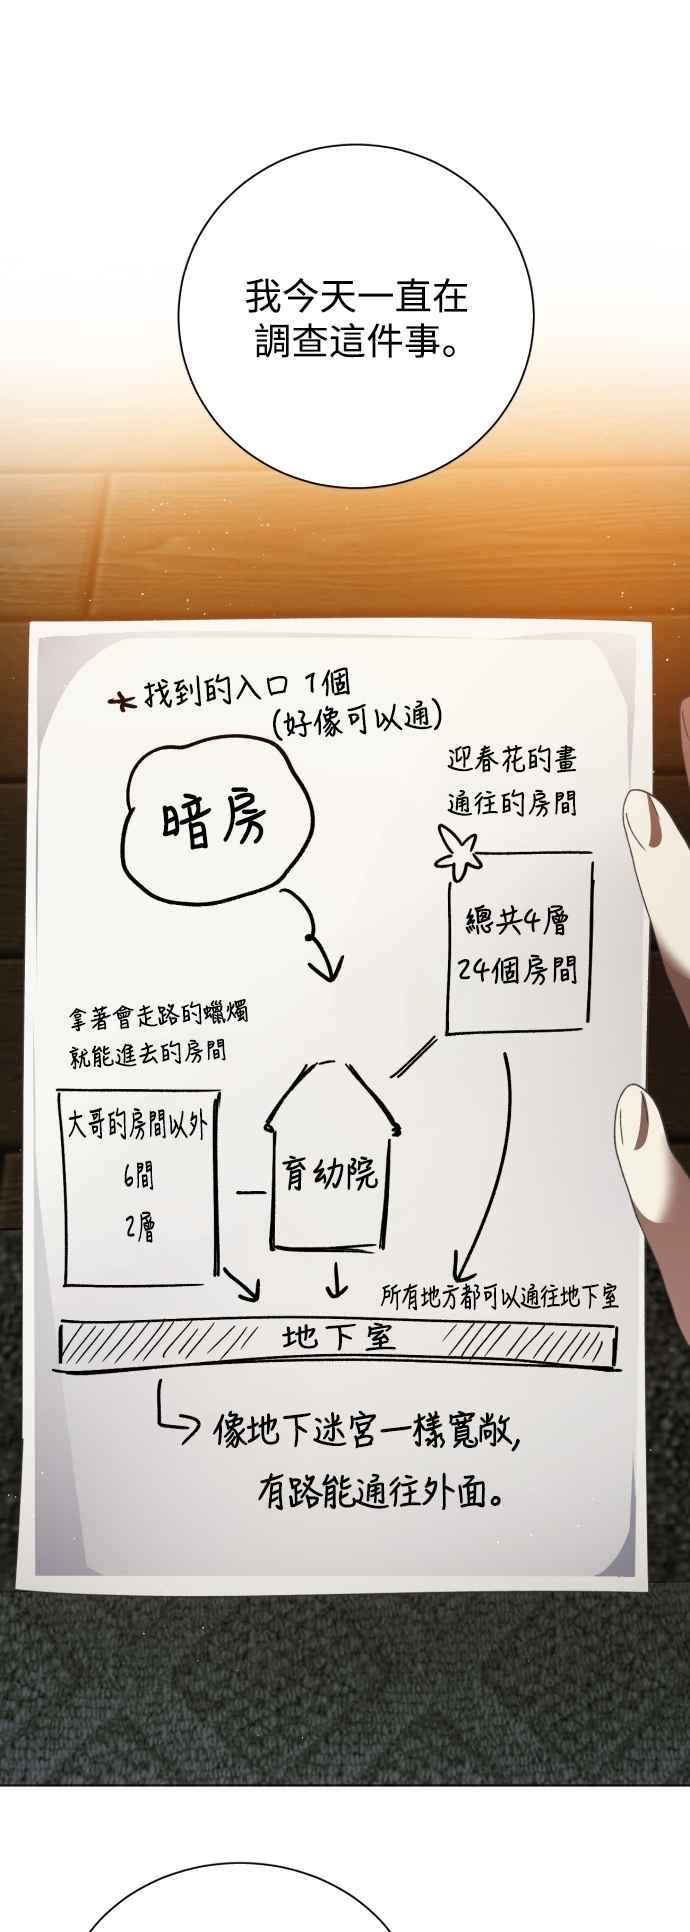 我今天一直在
調查這件事。
*找到的入口 1個
(好像可以通)
暗房
迎春花的畫
通往的房間
總共4層
24個房間
拿著會走路的蠟燭
就能進去的房間
大哥的房間以外
6間
2層
育幼院
所有地方都可以通往地下室
地下室
像地下迷宮一樣寬敞,
有路能通往外面。